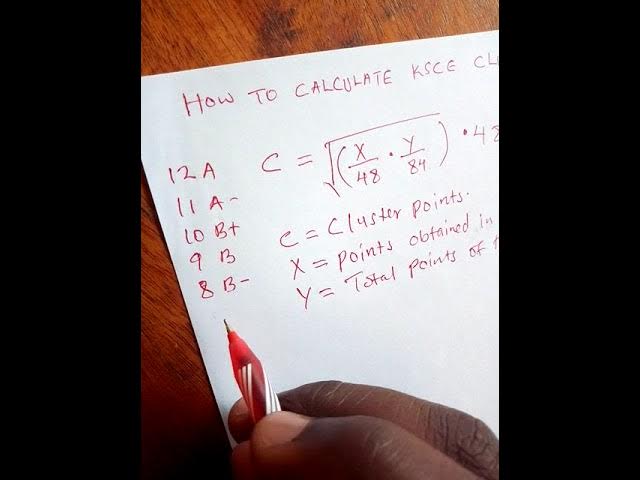 HOW TO CALCULATE KSCE CL
12 A
11 A-
10 B+
9 B
8 B-
C = √(X/48 · Y/84) · 48
C = Cluster points.
X = points obtained in
Y = Total points of